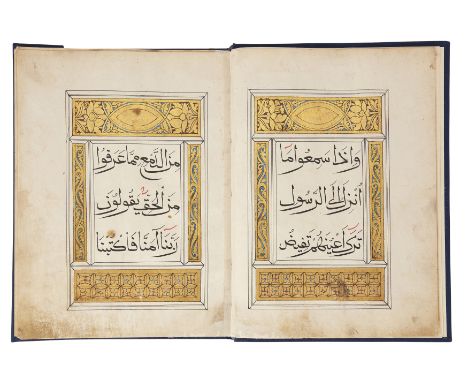 واذا سمعوا ما
أنزل إلى الرسول
ترى أعينهم تفيض
من الدمع مما عرفوا
من الحق يقولون
ربنا آمنا فاكتبنا